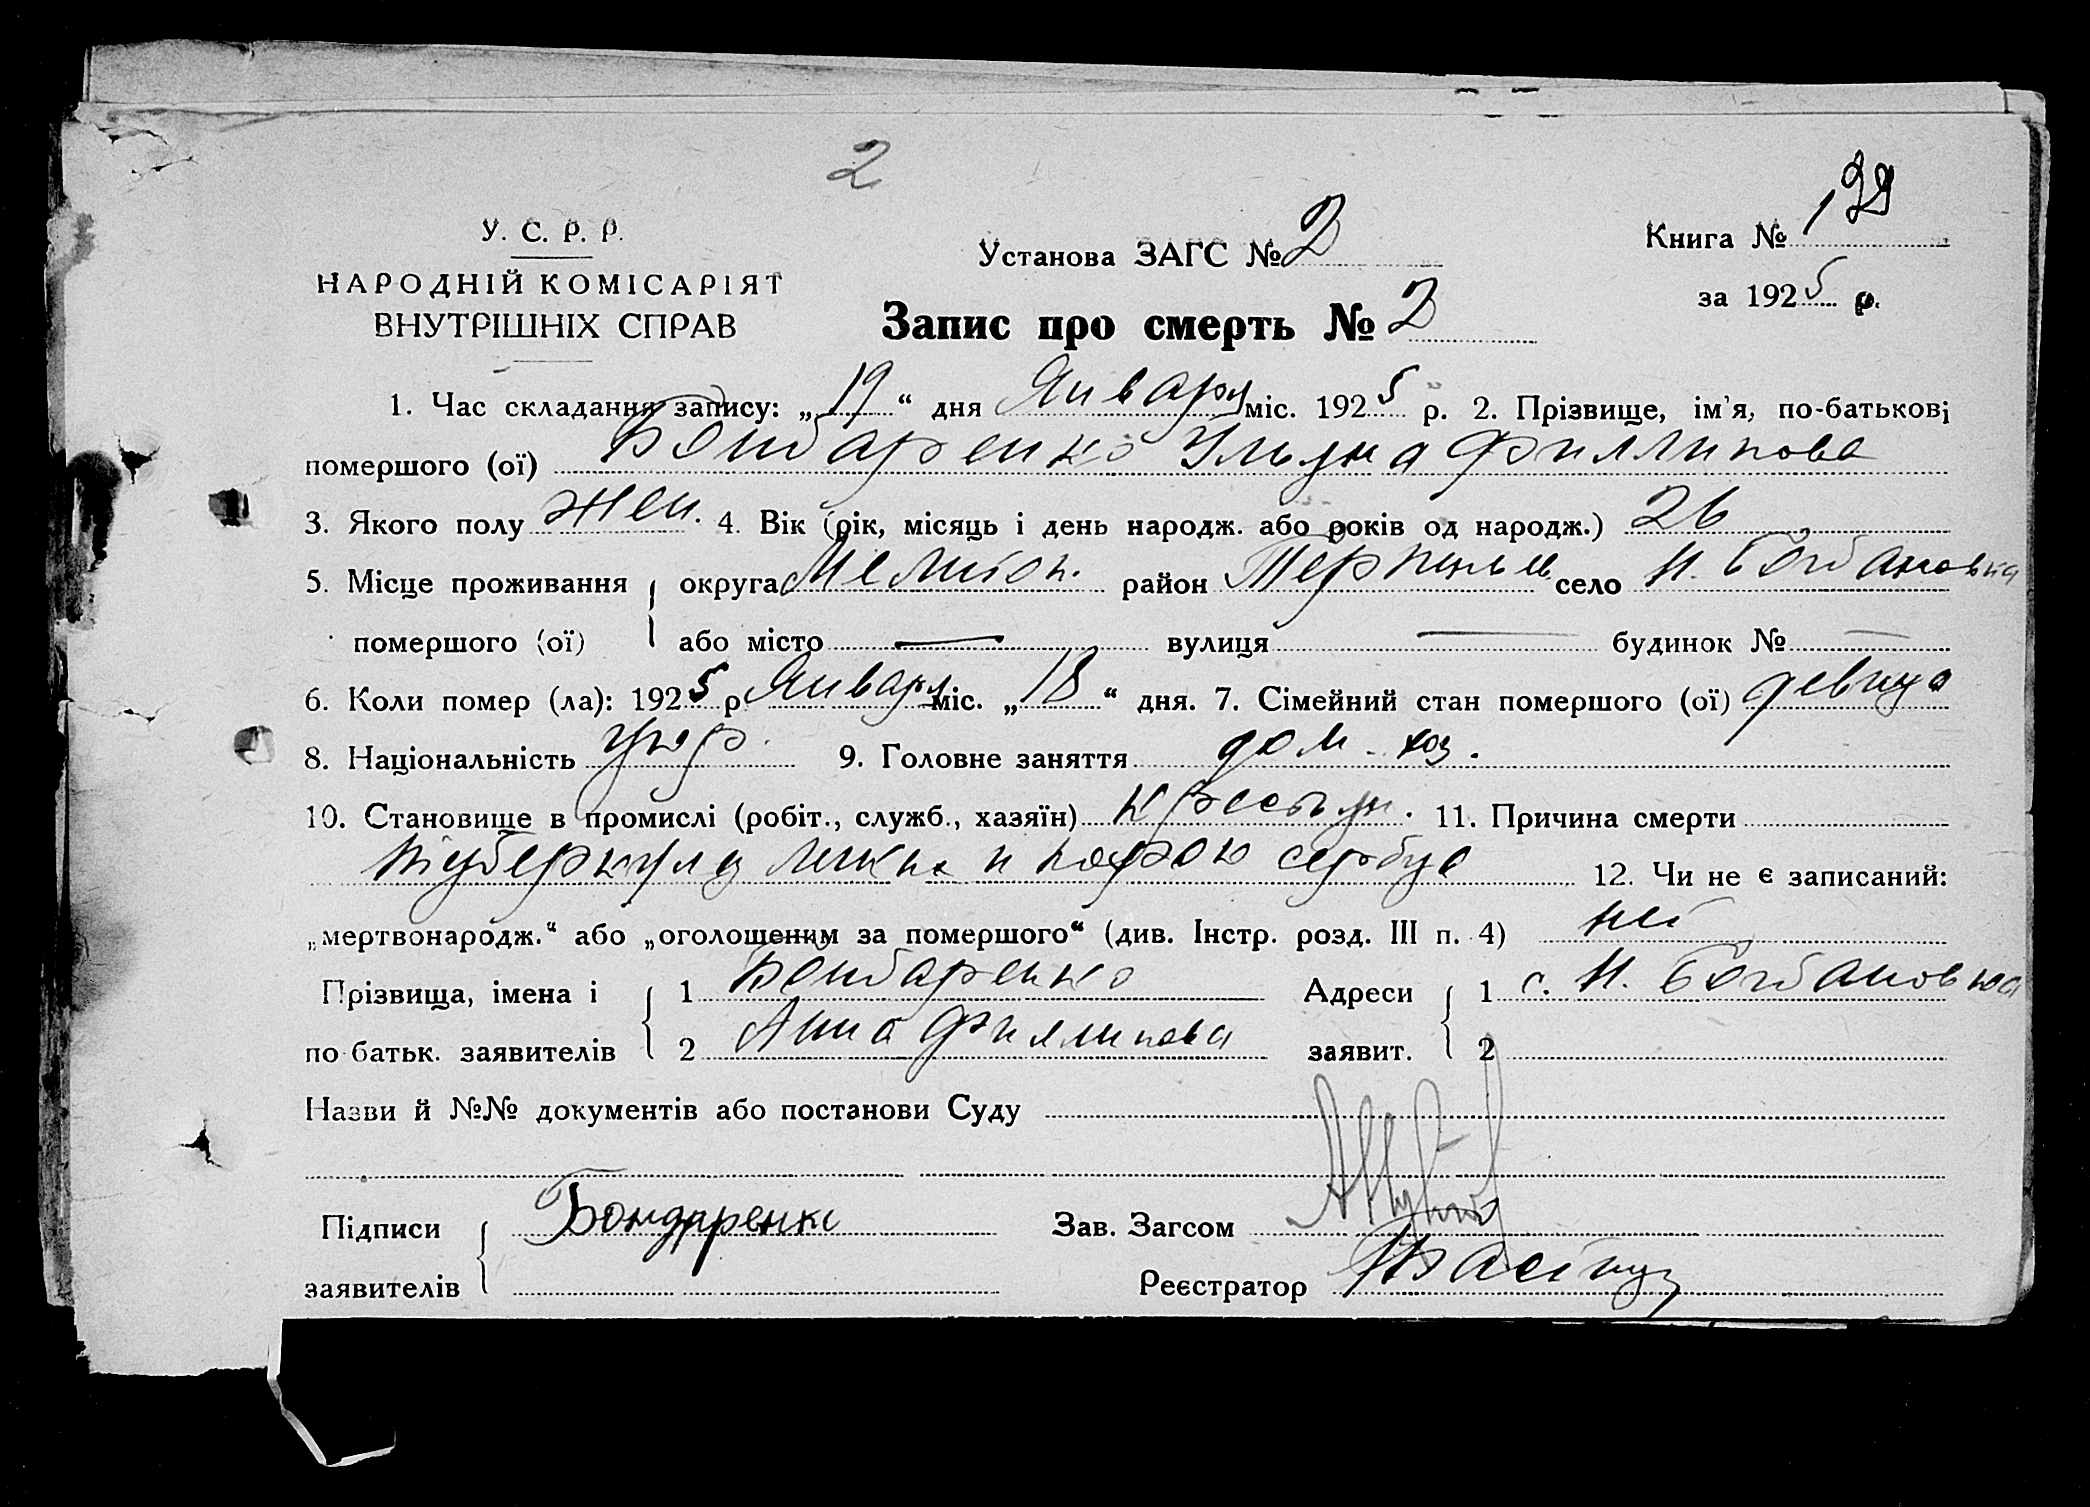 2
У. С. Р. Р.
НАРОДНІЙ КОМІСАРІЯТ
ВНУТРІШНІХ СПРАВ
Установа ЗАГС № 2
Книга № 139
за 1925 р.
Запис про смерть № 2
1. Час складання запису: „19“ дня Января міс. 1925 р. 2. Прізвище, ім'я, по-батькові
помершого (ої) Бондаренко Ульяна Филлипова
3. Якого полу жен. 4. Вік (рік, місяць і день народж. або років од народж.) 26
5. Місце проживання округа Мелитоп. район Терпеньев. село Н. Богдановка
помершого (ої) або місто — вулиця — будинок № —
6. Коли помер (ла): 1925 р. Января міс. „18“ дня. 7. Сімейний стан помершого (ої) девица
8. Національність укр. 9. Головне заняття дом. хоз.
10. Становище в промислі (робіт., служб., хазяїн) крестьян. 11. Причина смерти
туберкулез легких и порок сердца 12. Чи не є записаний:
„мертвонародж.“ або „оголошеним за помершого“ (див. Інстр. розд. III п. 4) нет
Прізвища, імена і 1 Бондаренко Адреси 1 с. Н. Богдановка
по-батьк. заявителів 2 Анна Филлипова заявит. 2
Назви й №№ документів або постанови Суду
Підписи Бондаренко Зав. Загсом
заявителів Реєстратор